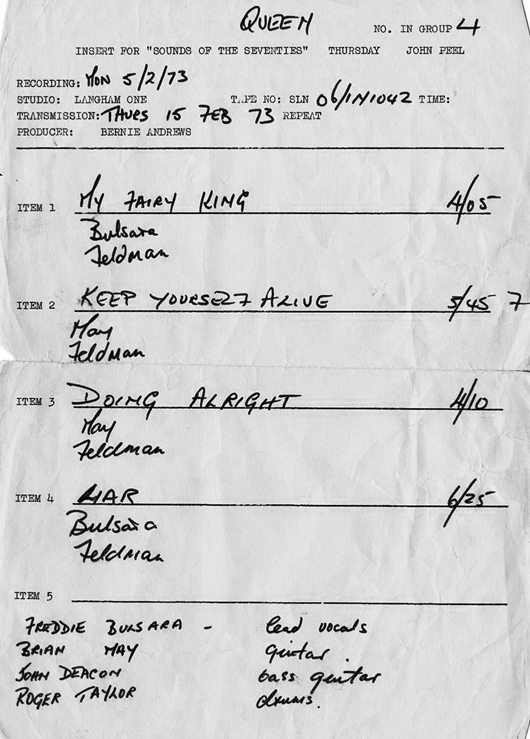 QUEEN NO. IN GROUP 4
INSERT FOR "SOUNDS OF THE SEVENTIES" THURSDAY JOHN PEEL
RECORDING: MON 5/2/73
STUDIO: LANGHAM ONE TAPE NO: SLN 06/1N1042 TIME:
TRANSMISSION: THURS 15 FEB 73 REPEAT
PRODUCER: BERNIE ANDREWS
ITEM 1 MY FAIRY KING 4/05
Bulsara
Feldman
ITEM 2 KEEP YOURSELF ALIVE 5/45 7
May
Feldman
ITEM 3 DOING ALRIGHT 4/10
May
Feldman
ITEM 4 LIAR 6/25
Bulsara
Feldman
ITEM 5
FREDDIE BULSARA - lead vocals
BRIAN MAY guitar.
JOHN DEACON bass guitar
ROGER TAYLOR drums.